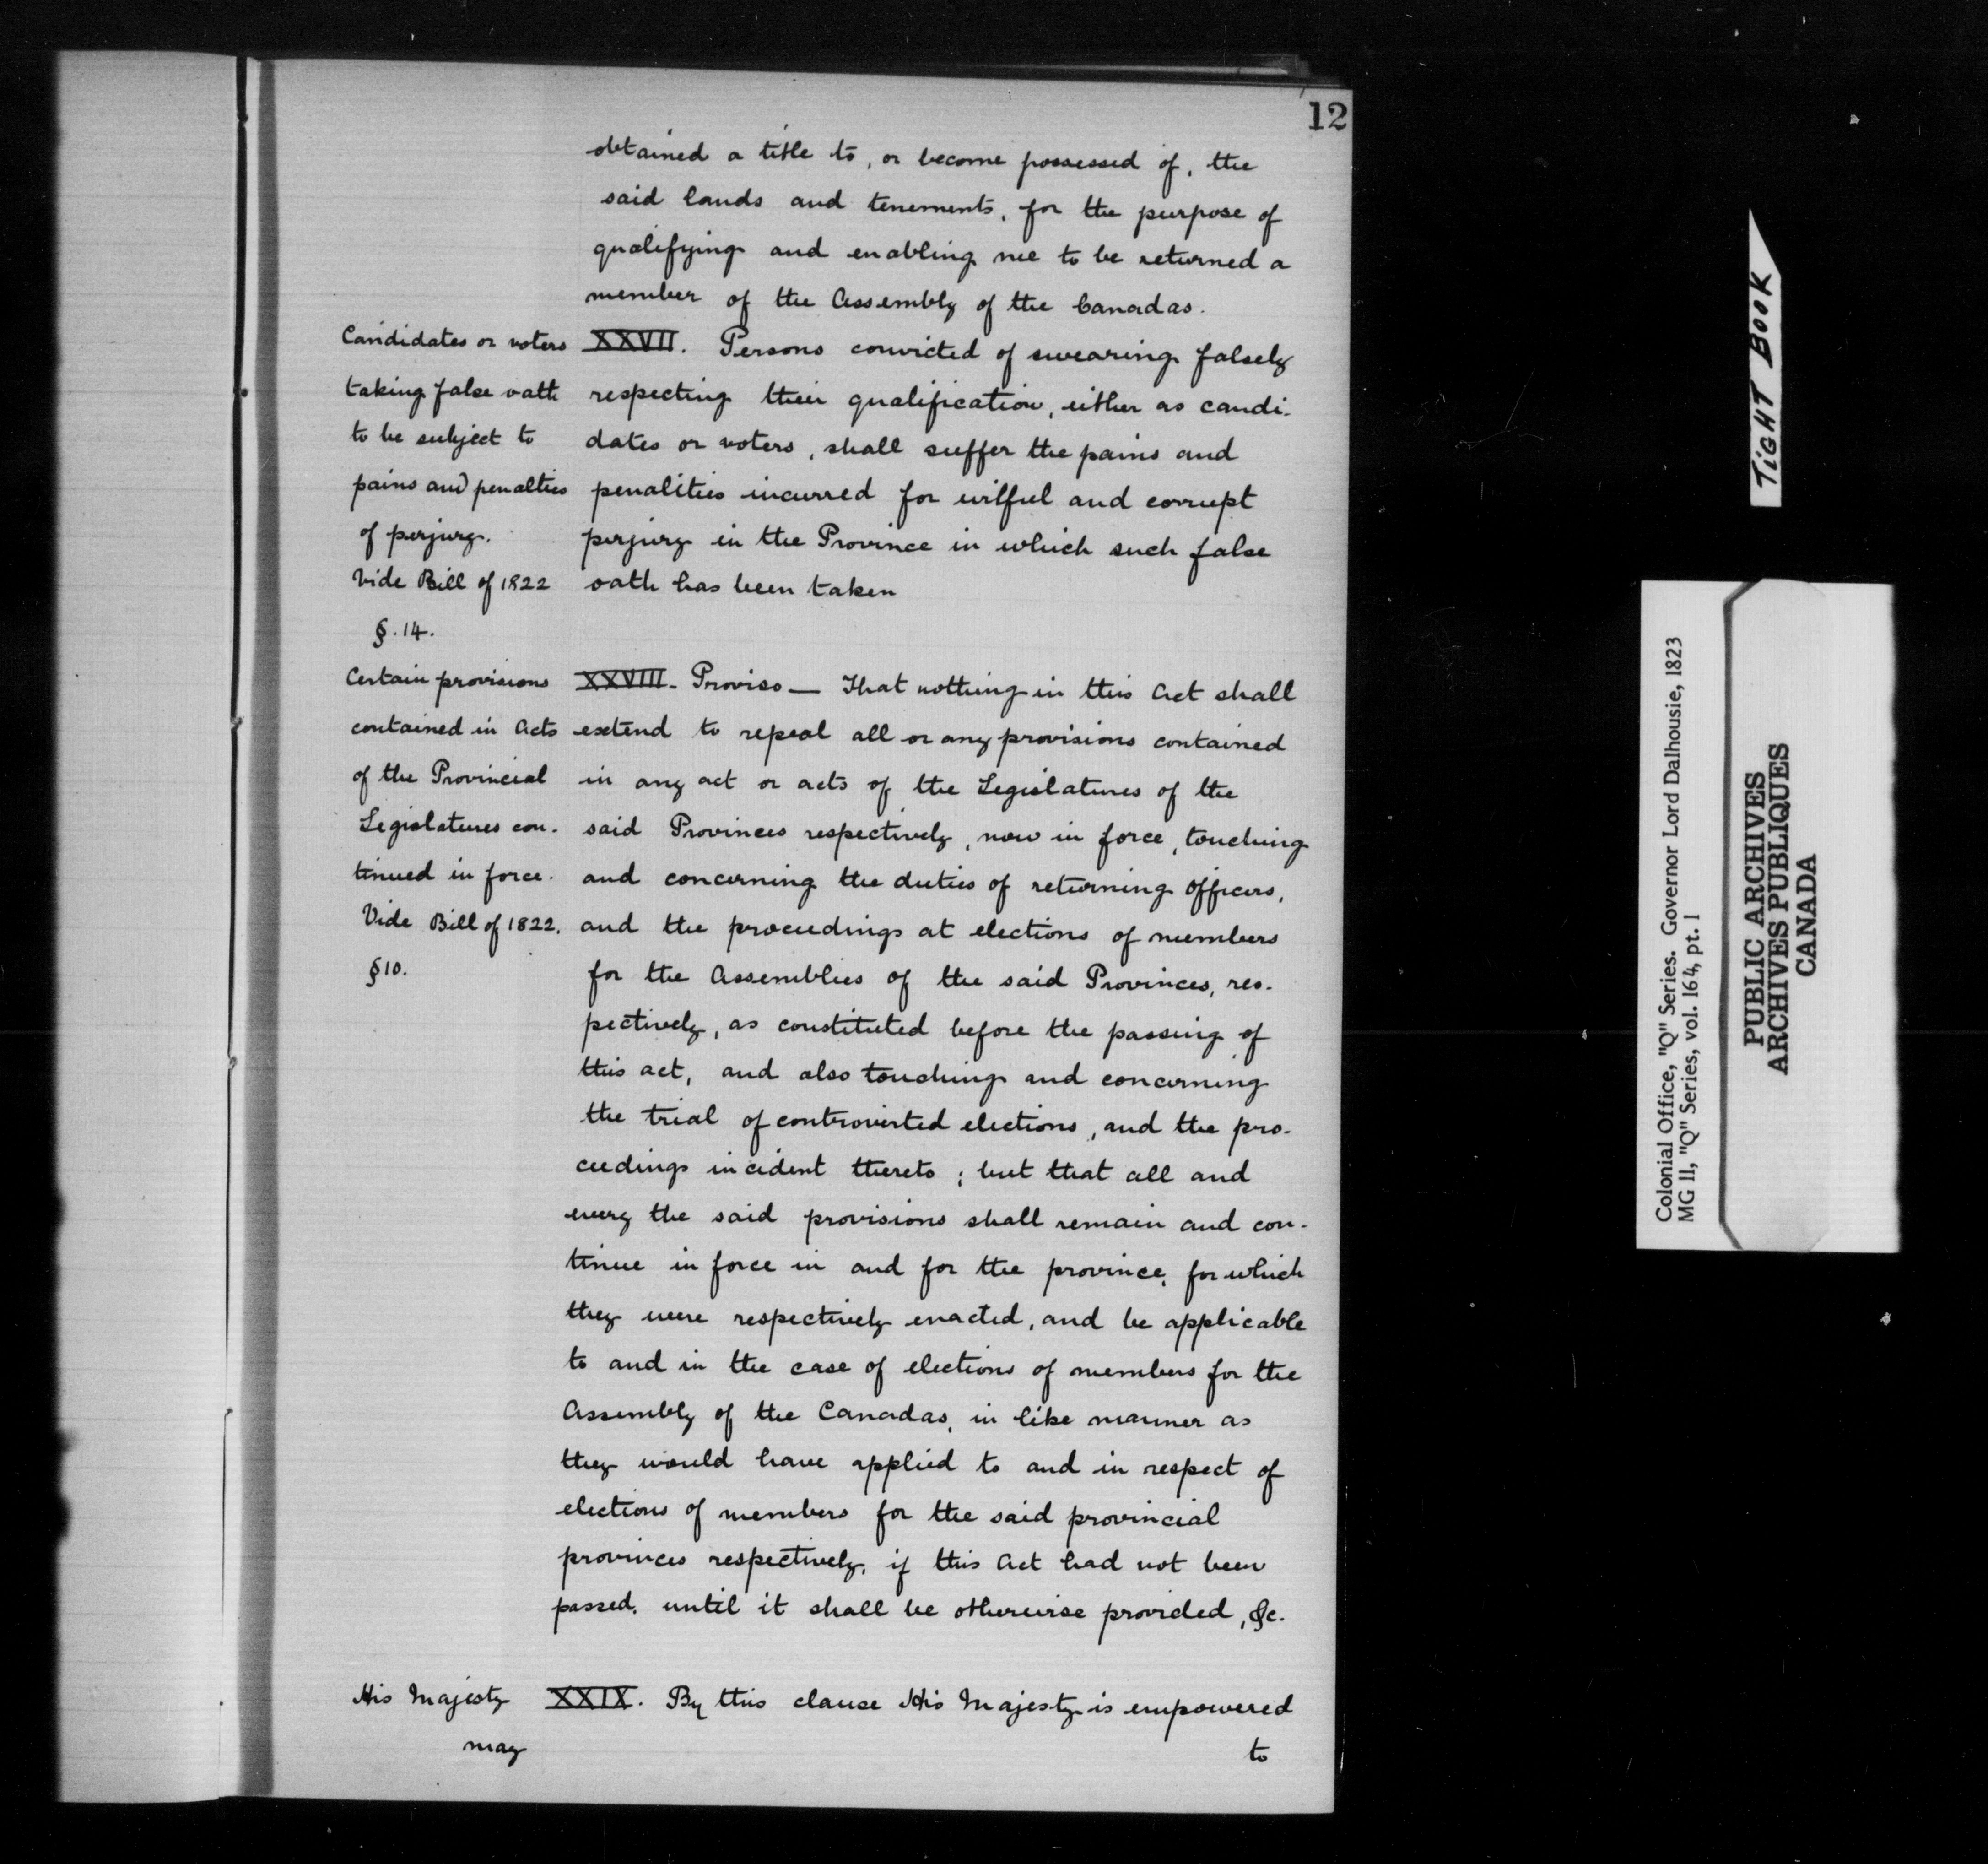 12
obtained a title to, or become possessed of, the
said lands and tenements, for the purpose of
qualifying and enabling me to be returned a
member of the Assembly of the Canadas.
Candidates or voters
taking false oath
to be subject to
pains and penalties
of perjury.
Vide Bill of 1822
§.14.
XXVII. Persons convicted of swearing falsely
respecting their qualification, either as candi-
dates or voters, shall suffer the pains and
penalities incurred for wilful and corrupt
perjury in the Province in which such false
oath has been taken
Certain provisions
contained in Acts
of the Provincial
Legislatures con-
tinued in force.
Vide Bill of 1822.
§10.
XXVIII. Proviso — That nothing in this Act shall
extend to repeal all or any provisions contained
in any act or acts of the Legislatures of the
said Provinces respectively, now in force, touching
and concerning the duties of returning officers,
and the proceedings at elections of members
for the Assemblies of the said Provinces, res-
pectively, as constituted before the passing of
this act, and also touching and concerning
the trial of controverted elections, and the pro-
ceedings incident thereto; but that all and
every the said provisions shall remain and con-
tinue in force in and for the province, for which
they were respectively enacted, and be applicable
to and in the case of elections of members for the
Assembly of the Canadas, in like manner as
they would have applied to and in respect of
elections of members for the said provincial
provinces respectively, if this Act had not been
passed, until it shall be otherwise provided, &c.
His Majesty
may
XXIX. By this clause His Majesty is empowered
to
TIGHT BOOK
Colonial Office, "Q" Series. Governor Lord Dalhousie, 1823
MG 11, "Q" Series, vol. 164, pt. 1
PUBLIC ARCHIVES
ARCHIVES PUBLIQUES
CANADA